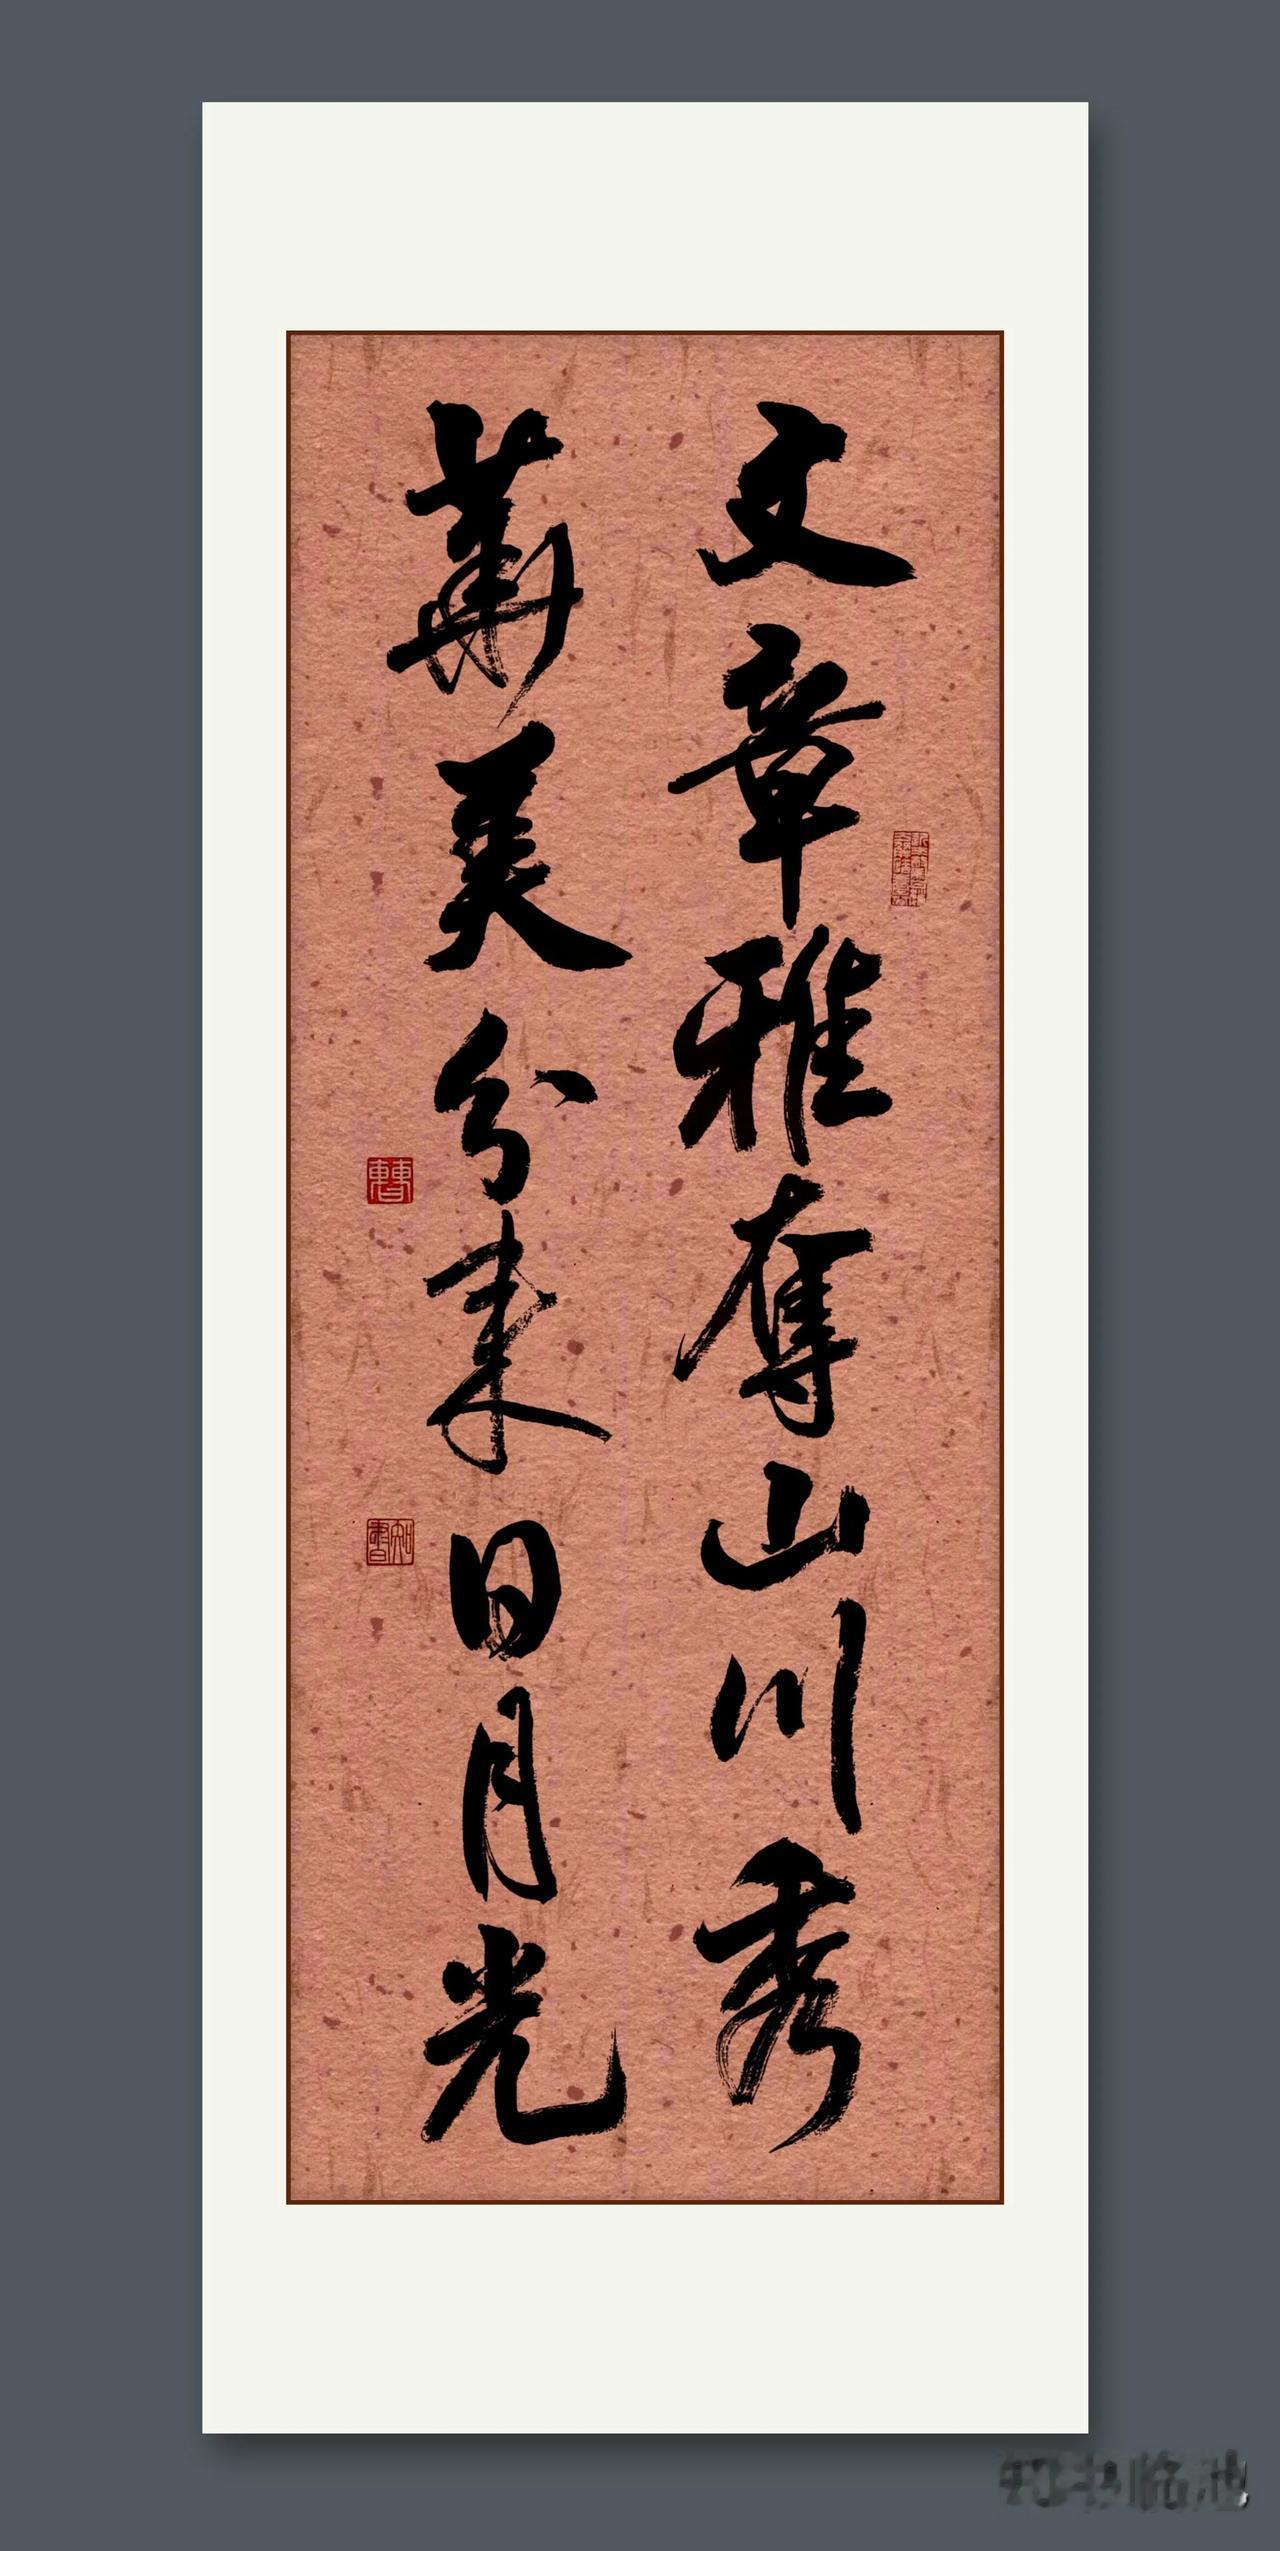 文章雅奪山川秀
華美分来日月光
知书临池